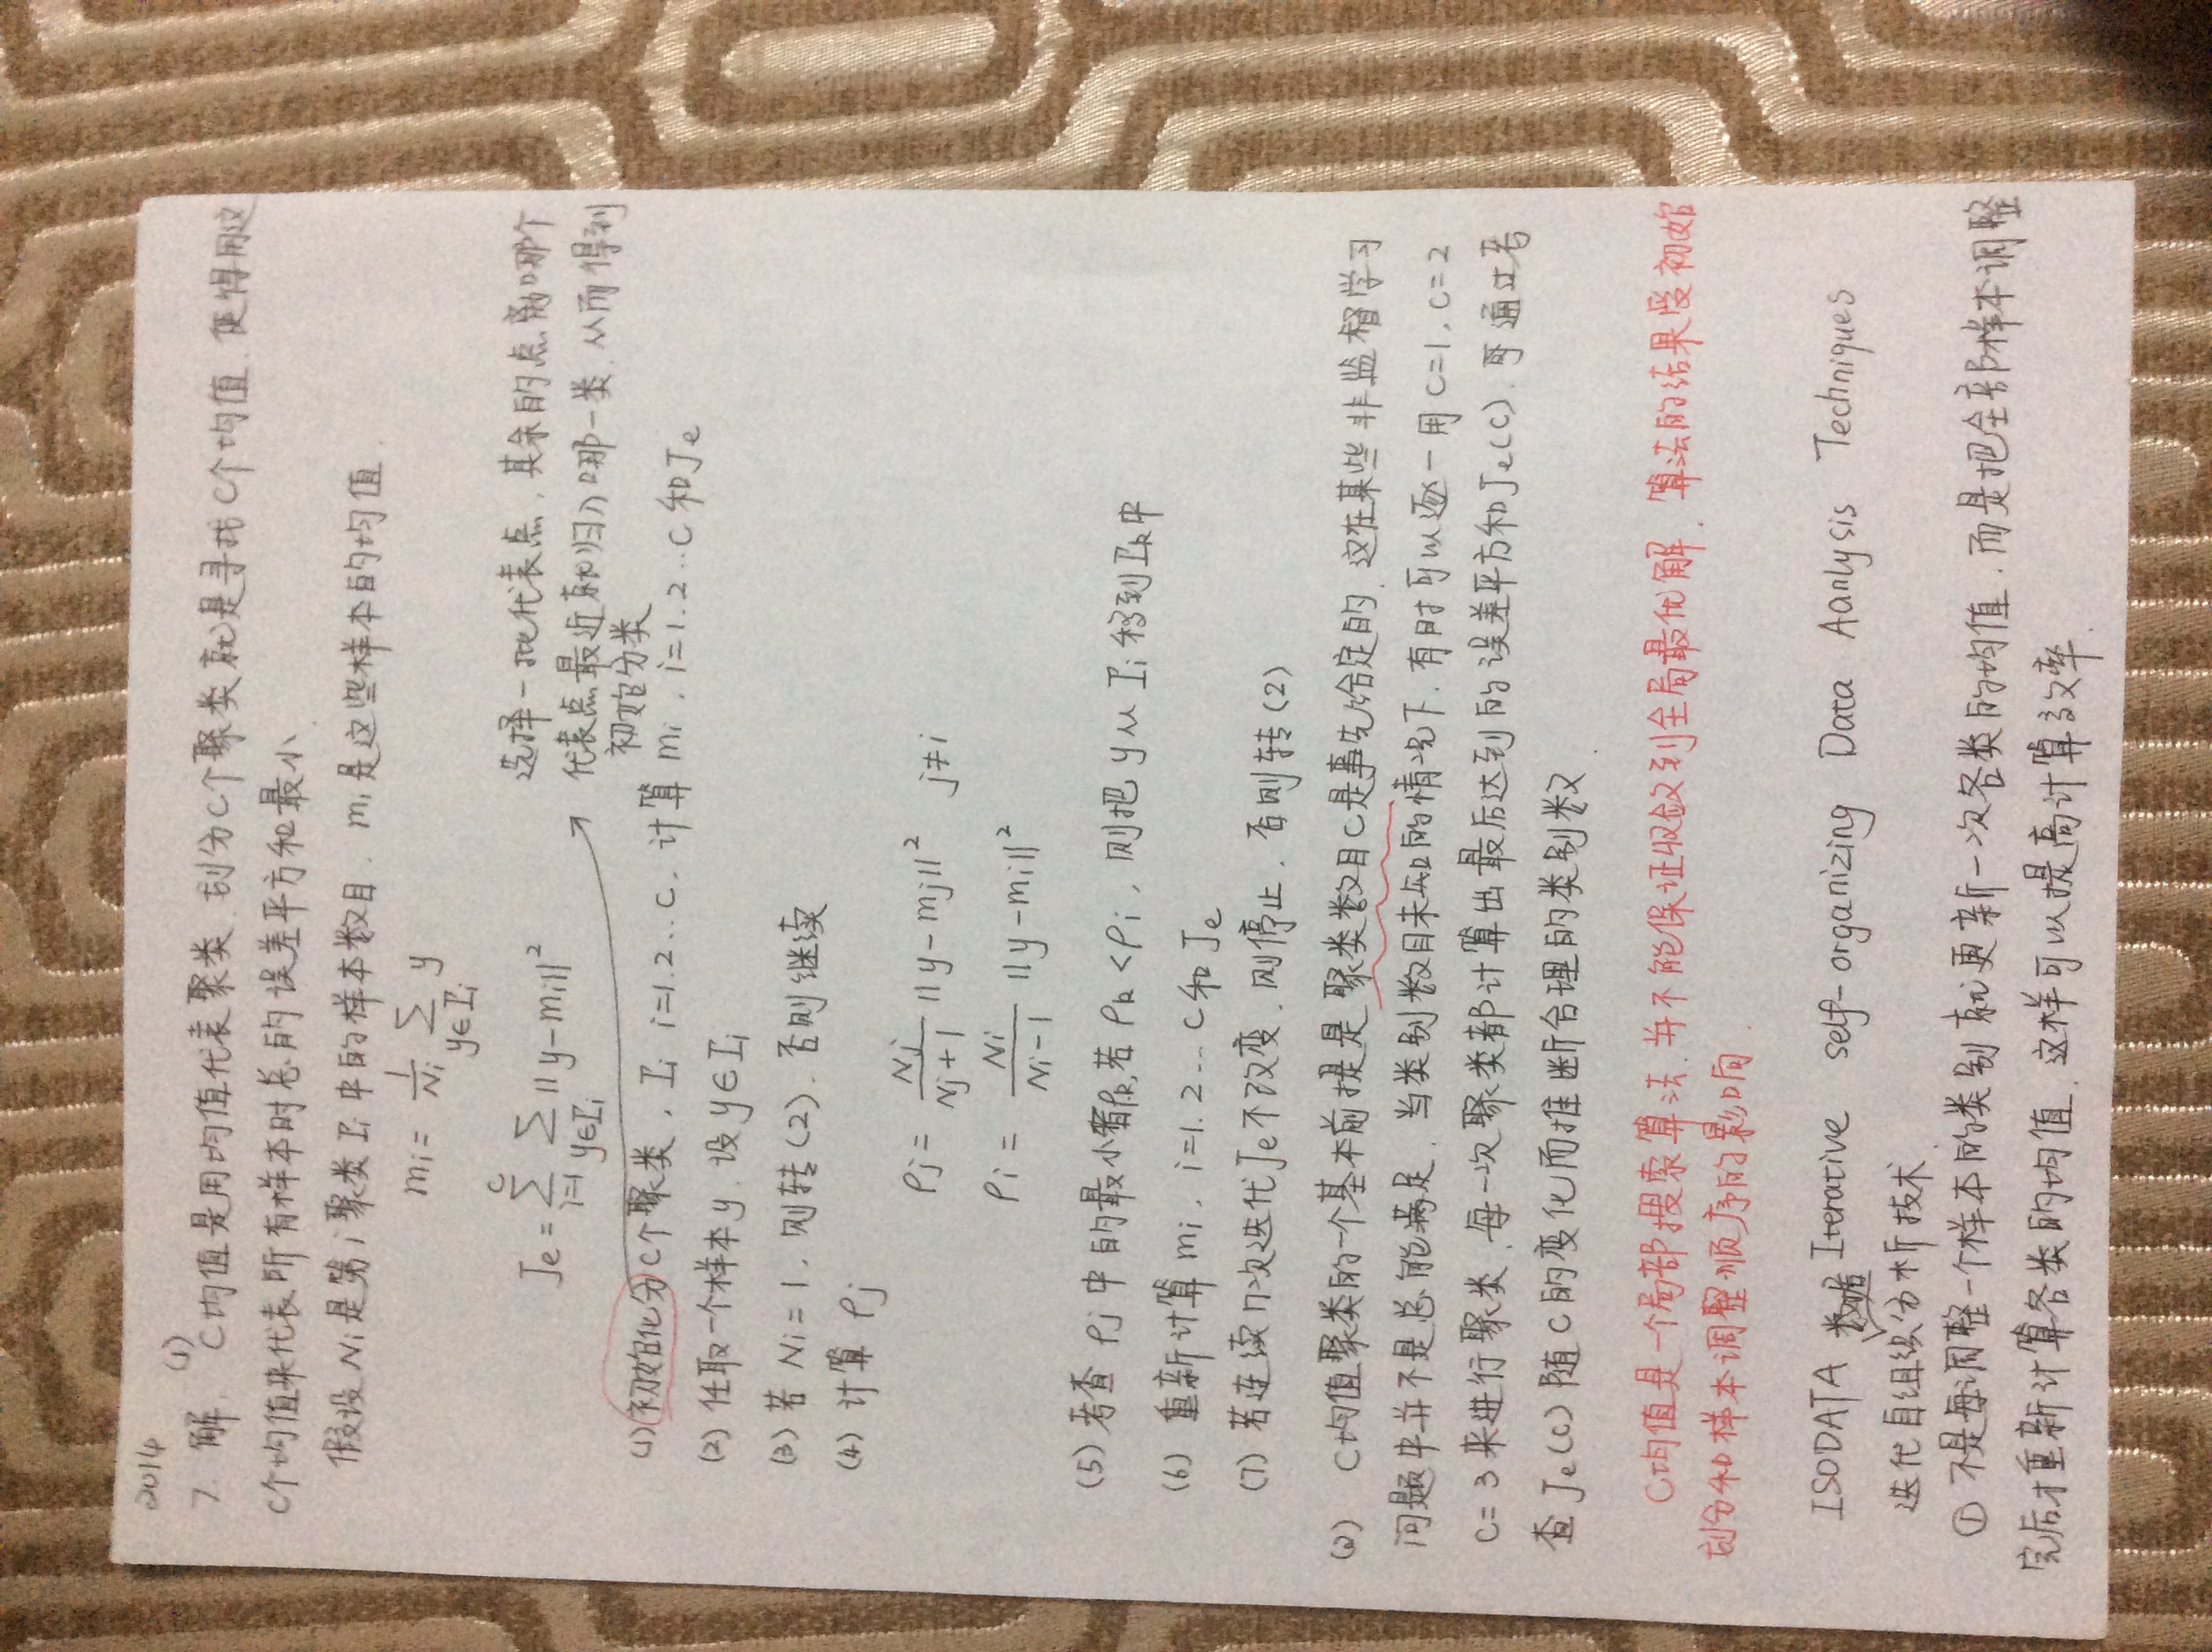 2014
7. 解. (1) C均值是用均值代表聚类. 划分C个聚类就是寻找C个均值. 使得用这
C个均值来代表所有样本时总的误差平方和最小.
假设Ni是第i聚类Γi中的样本数目. mi是这些样本的均值.
mi = 1/Ni ∑y∈Γi y
Je = ∑i=1^C ∑y∈Γi ||y-mi||²
选择一批代表点, 其余的点离哪个
代表点最近就归入哪一类. 从而得到
初始分类
(1) 初始化分C个聚类, Γi i=1.2...C. 计算 mi, i=1.2...C 和Je
(2) 任取一个样本y. 设y∈Γi
(3) 若 Ni=1. 则转(2). 否则继续
(4) 计算 ρj
ρj = Nj/(Nj+1) ||y-mj||² j≠i
ρi = Ni/(Ni-1) ||y-mi||²
(5) 考查 ρj 中的最小者ρk, 若 ρk<ρi, 则把y从Γi移到Γk中
(6) 重新计算 mi, i=1.2...C和Je
(7) 若连续n次迭代Je不改变. 则停止. 否则转(2)
(2) C均值聚类的一个基本前提是聚类数目C是事先给定的. 这在某些非监督学习
问题中并不是总能满足. 当类别数目未知的情况下. 有时可以逐一用C=1, C=2
C=3来进行聚类. 每一次聚类都计算出最后达到的误差平方和Je(C). 可通过考
查Je(C)随C的变化而推断合理的类别数
C均值是一个局部搜索算法. 并不能保证收敛到全局最优解. 算法的结果受初始
划分和样本调整顺序的影响.
ISODATA Iterative self-organizing Data Aanlysis Techniques
迭代自组织分析技术 数据
① 不是每调整一个样本的类别就更新一次各类的均值. 而是把全部样本调整
完后才重新计算各类的均值. 这样可以提高计算效率.